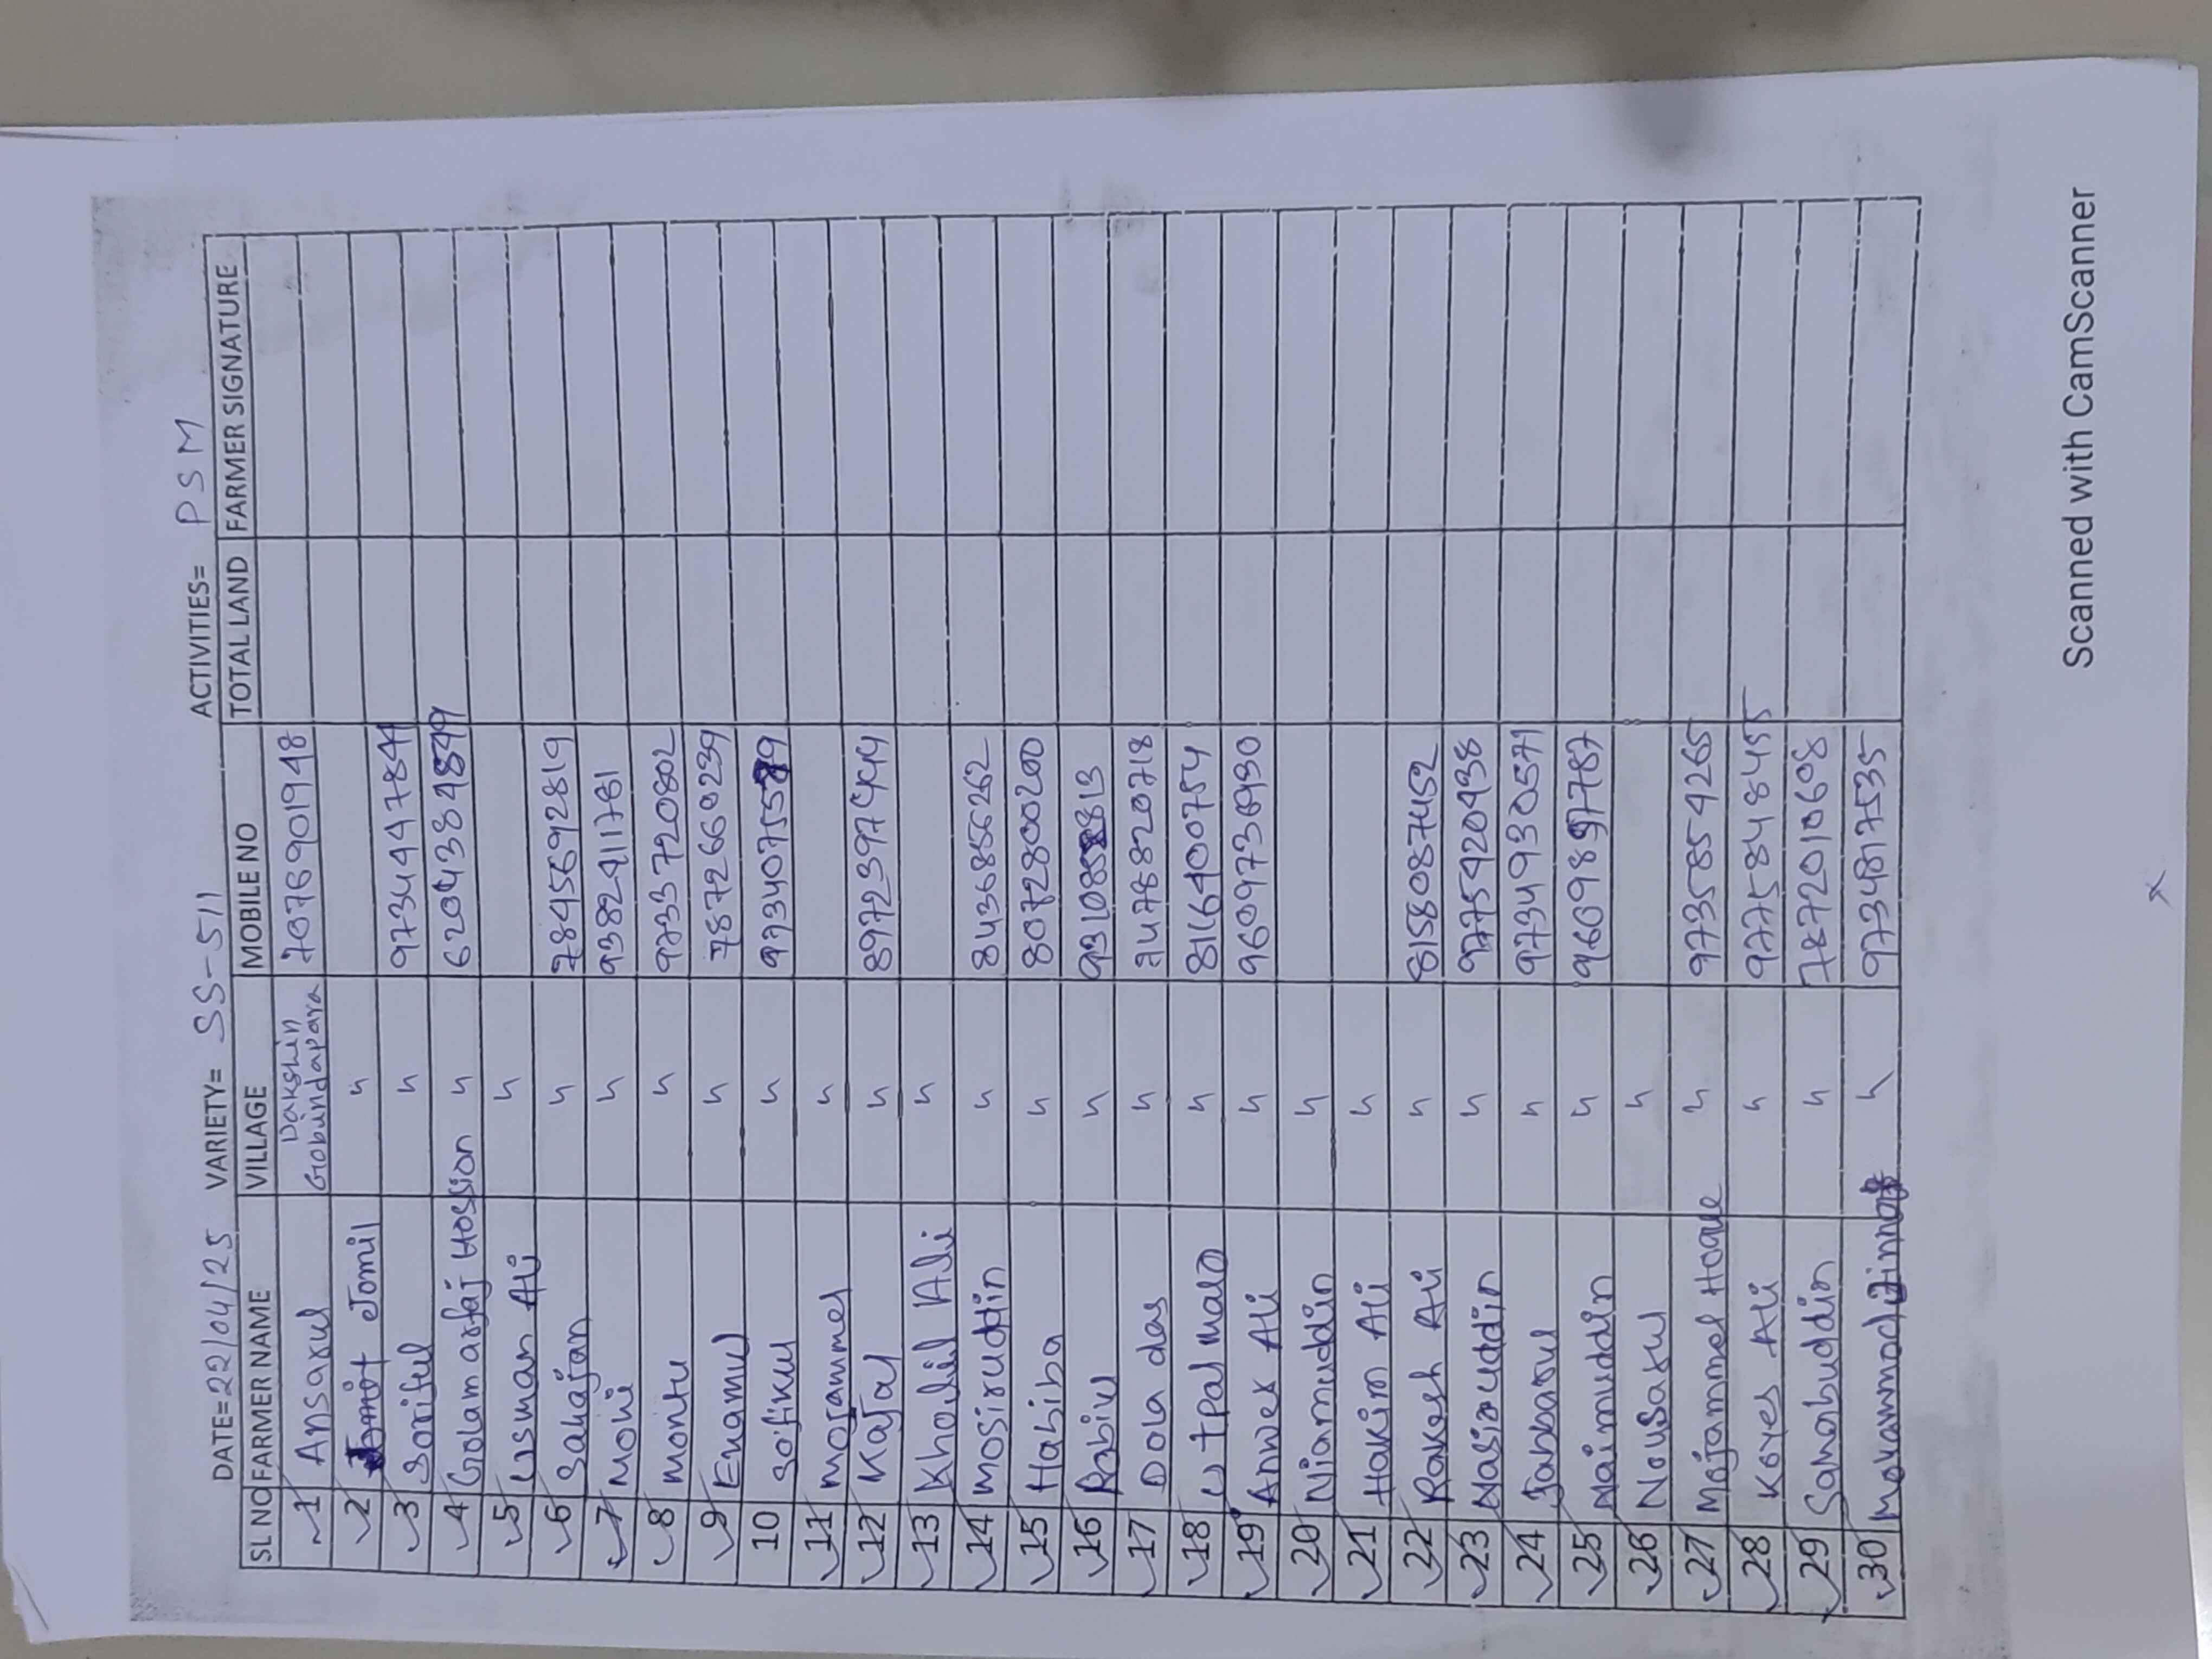 DATE=22/04/25 VARIETY= SS-511 ACTIVITIES= PSM
SL NO FARMER NAME VILLAGE MOBILE NO TOTAL LAND FARMER SIGNATURE
1 Ansarul Dakshin Gobindapara 7076901948
2 Jomil "
3 Soriful " 9734447844
4 Golam arfaj Hossion " 6204384849
5 Usman Ali "
6 Sahajan " 7845692819
7 Mohi " 9382411781
8 Montu " 9733720802
9 Enamul " 7872660239
10 Sofikul " 9734075589
11 Mojammel "
12 Kajal " 8972397444
13 Kholil Ali "
14 Mosiruddin " 8436855262
15 Habiba " 8072800200
16 Rabiul "
17 Dola das " 7478820718
18 Utpal malo " 8164000754
19 Anwer Ali " 9609736930
20 Niamuddin "
21 Hakim Ali "
22 Rakesh Ali " 8158087452
23 Nasiruddin " 9775420438
24 Jabbarul " 9734930571
25 Naimuddin "
26 Nousarul "
27 Mojammel Hoque " 9735854265
28 Koyes Ali " 9775848455
29 Sanabuddin " 7872010608
30 " 9734817535
Scanned with CamScanner